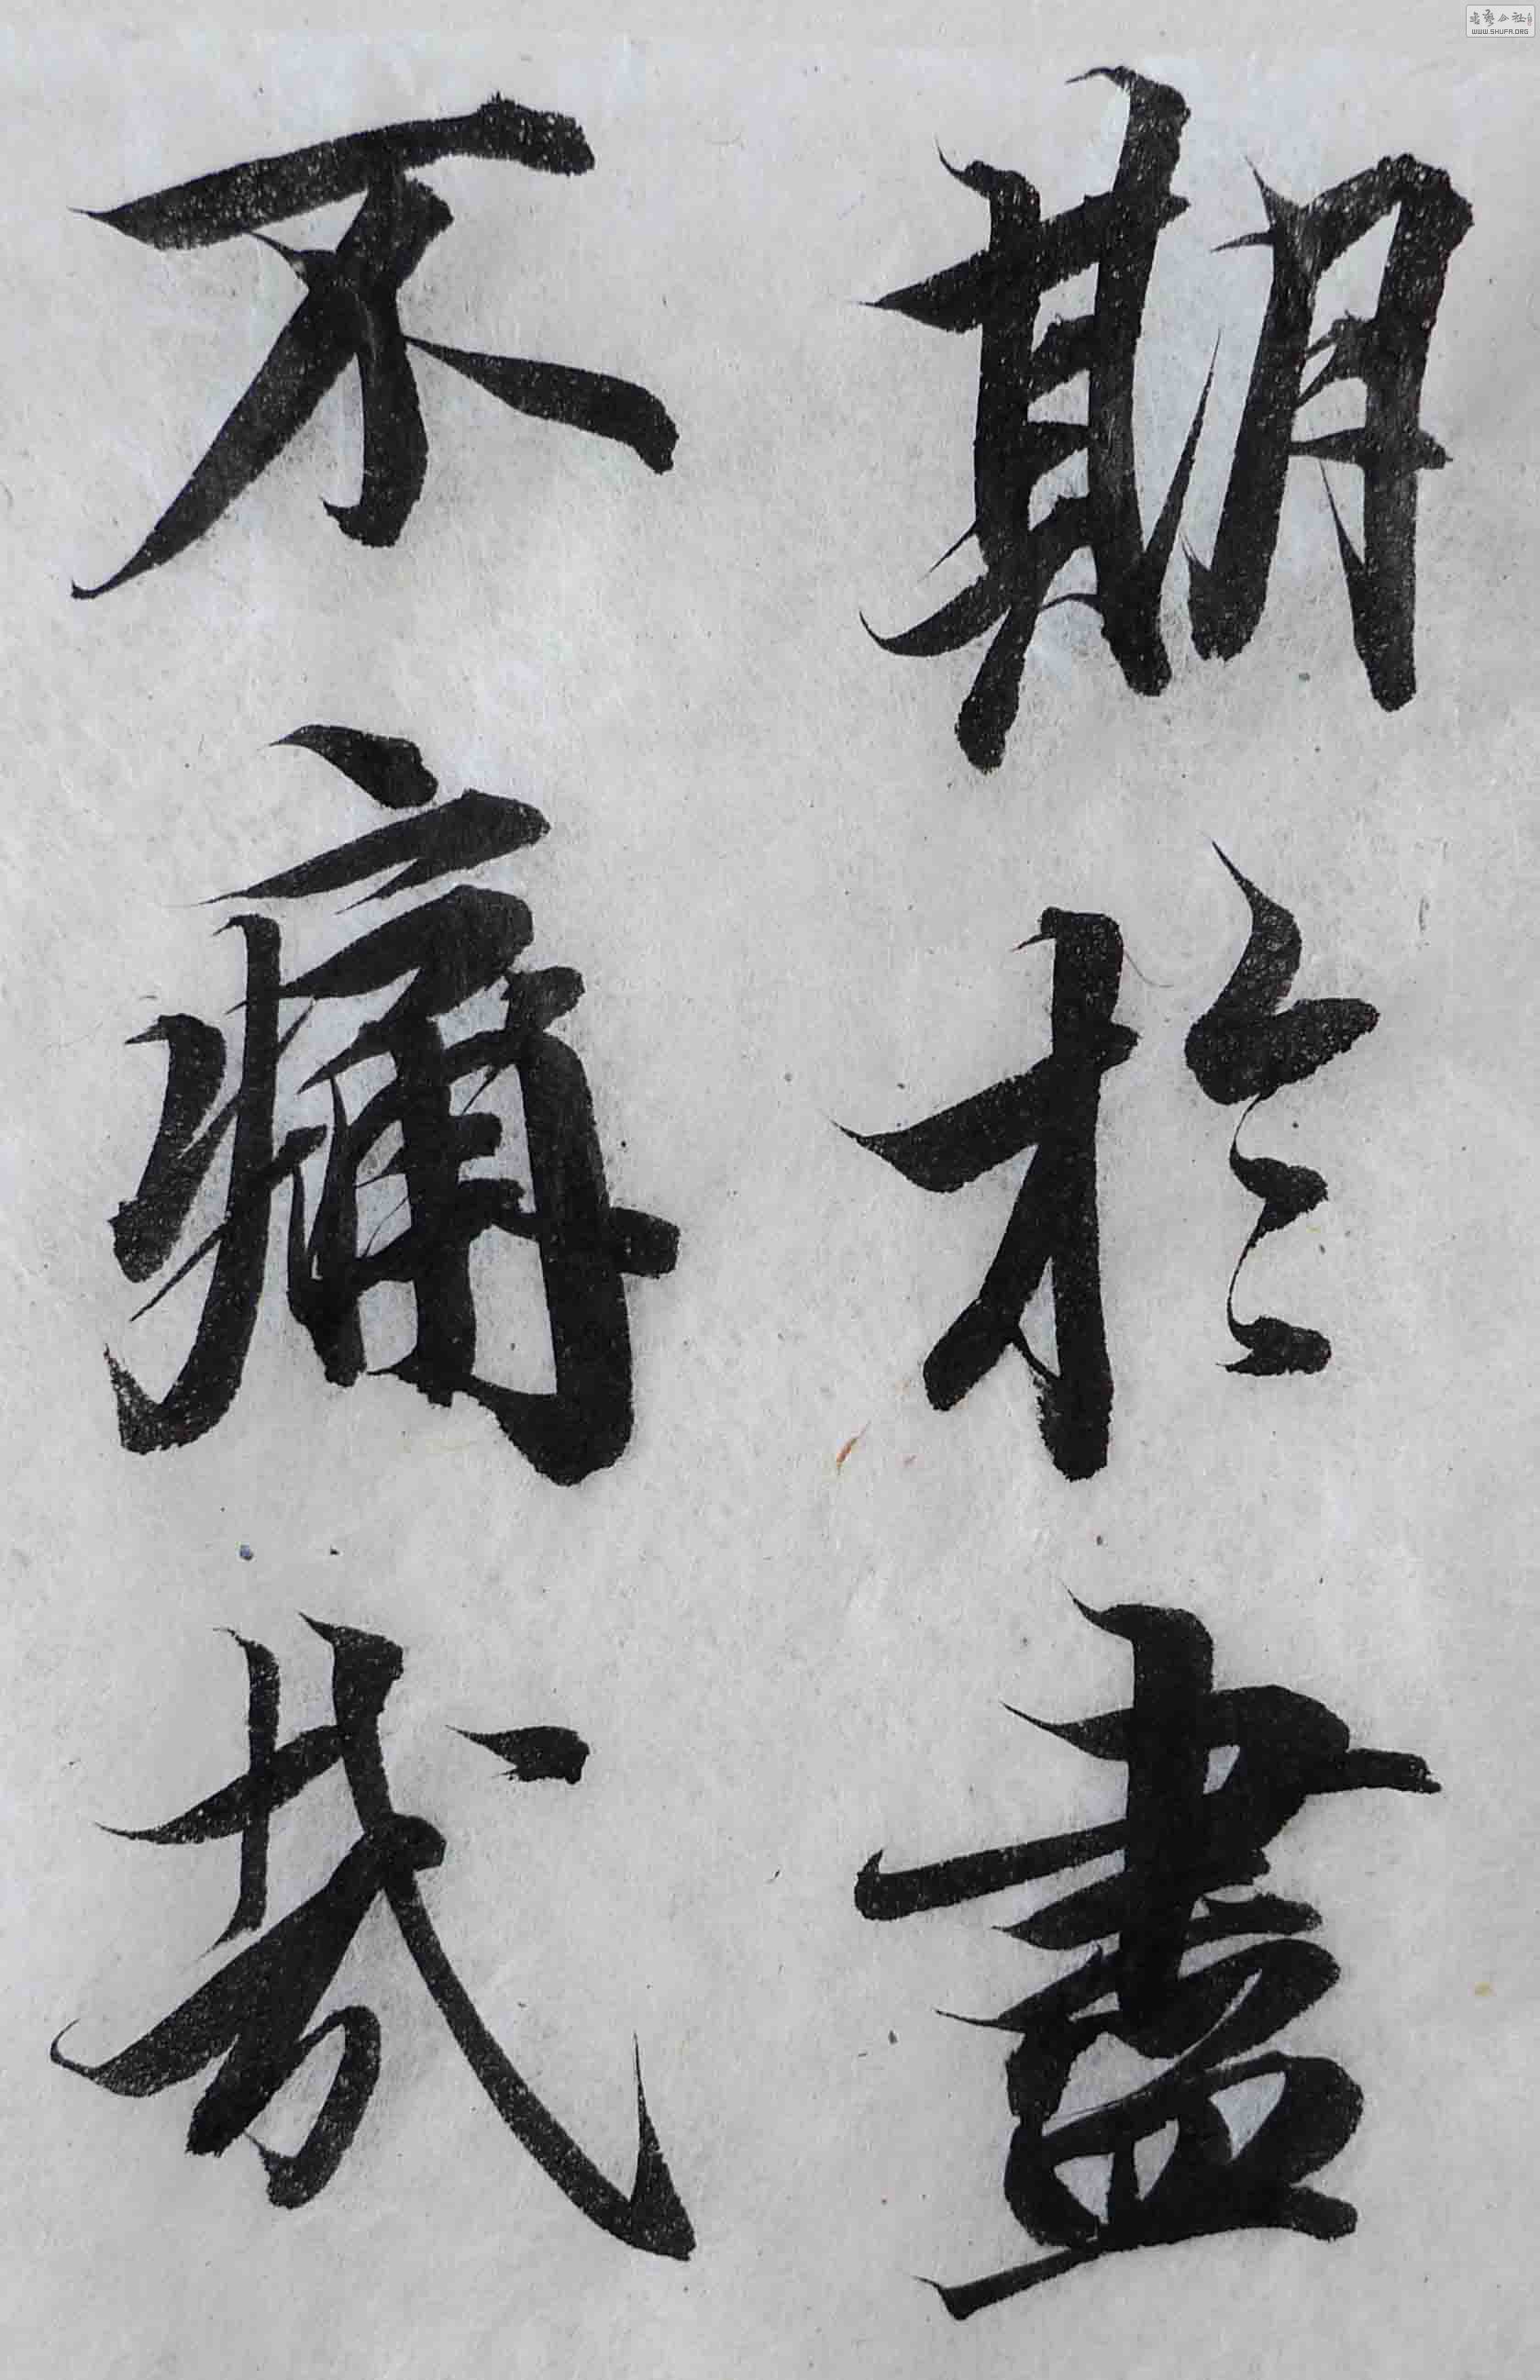 期於盡
不痛哉
WWW.SHUFA.ORG